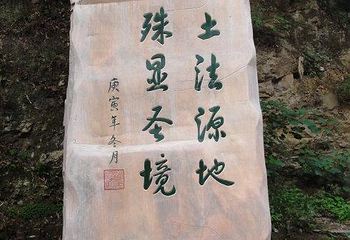 土法源地
殊显圣境
庚寅年冬月